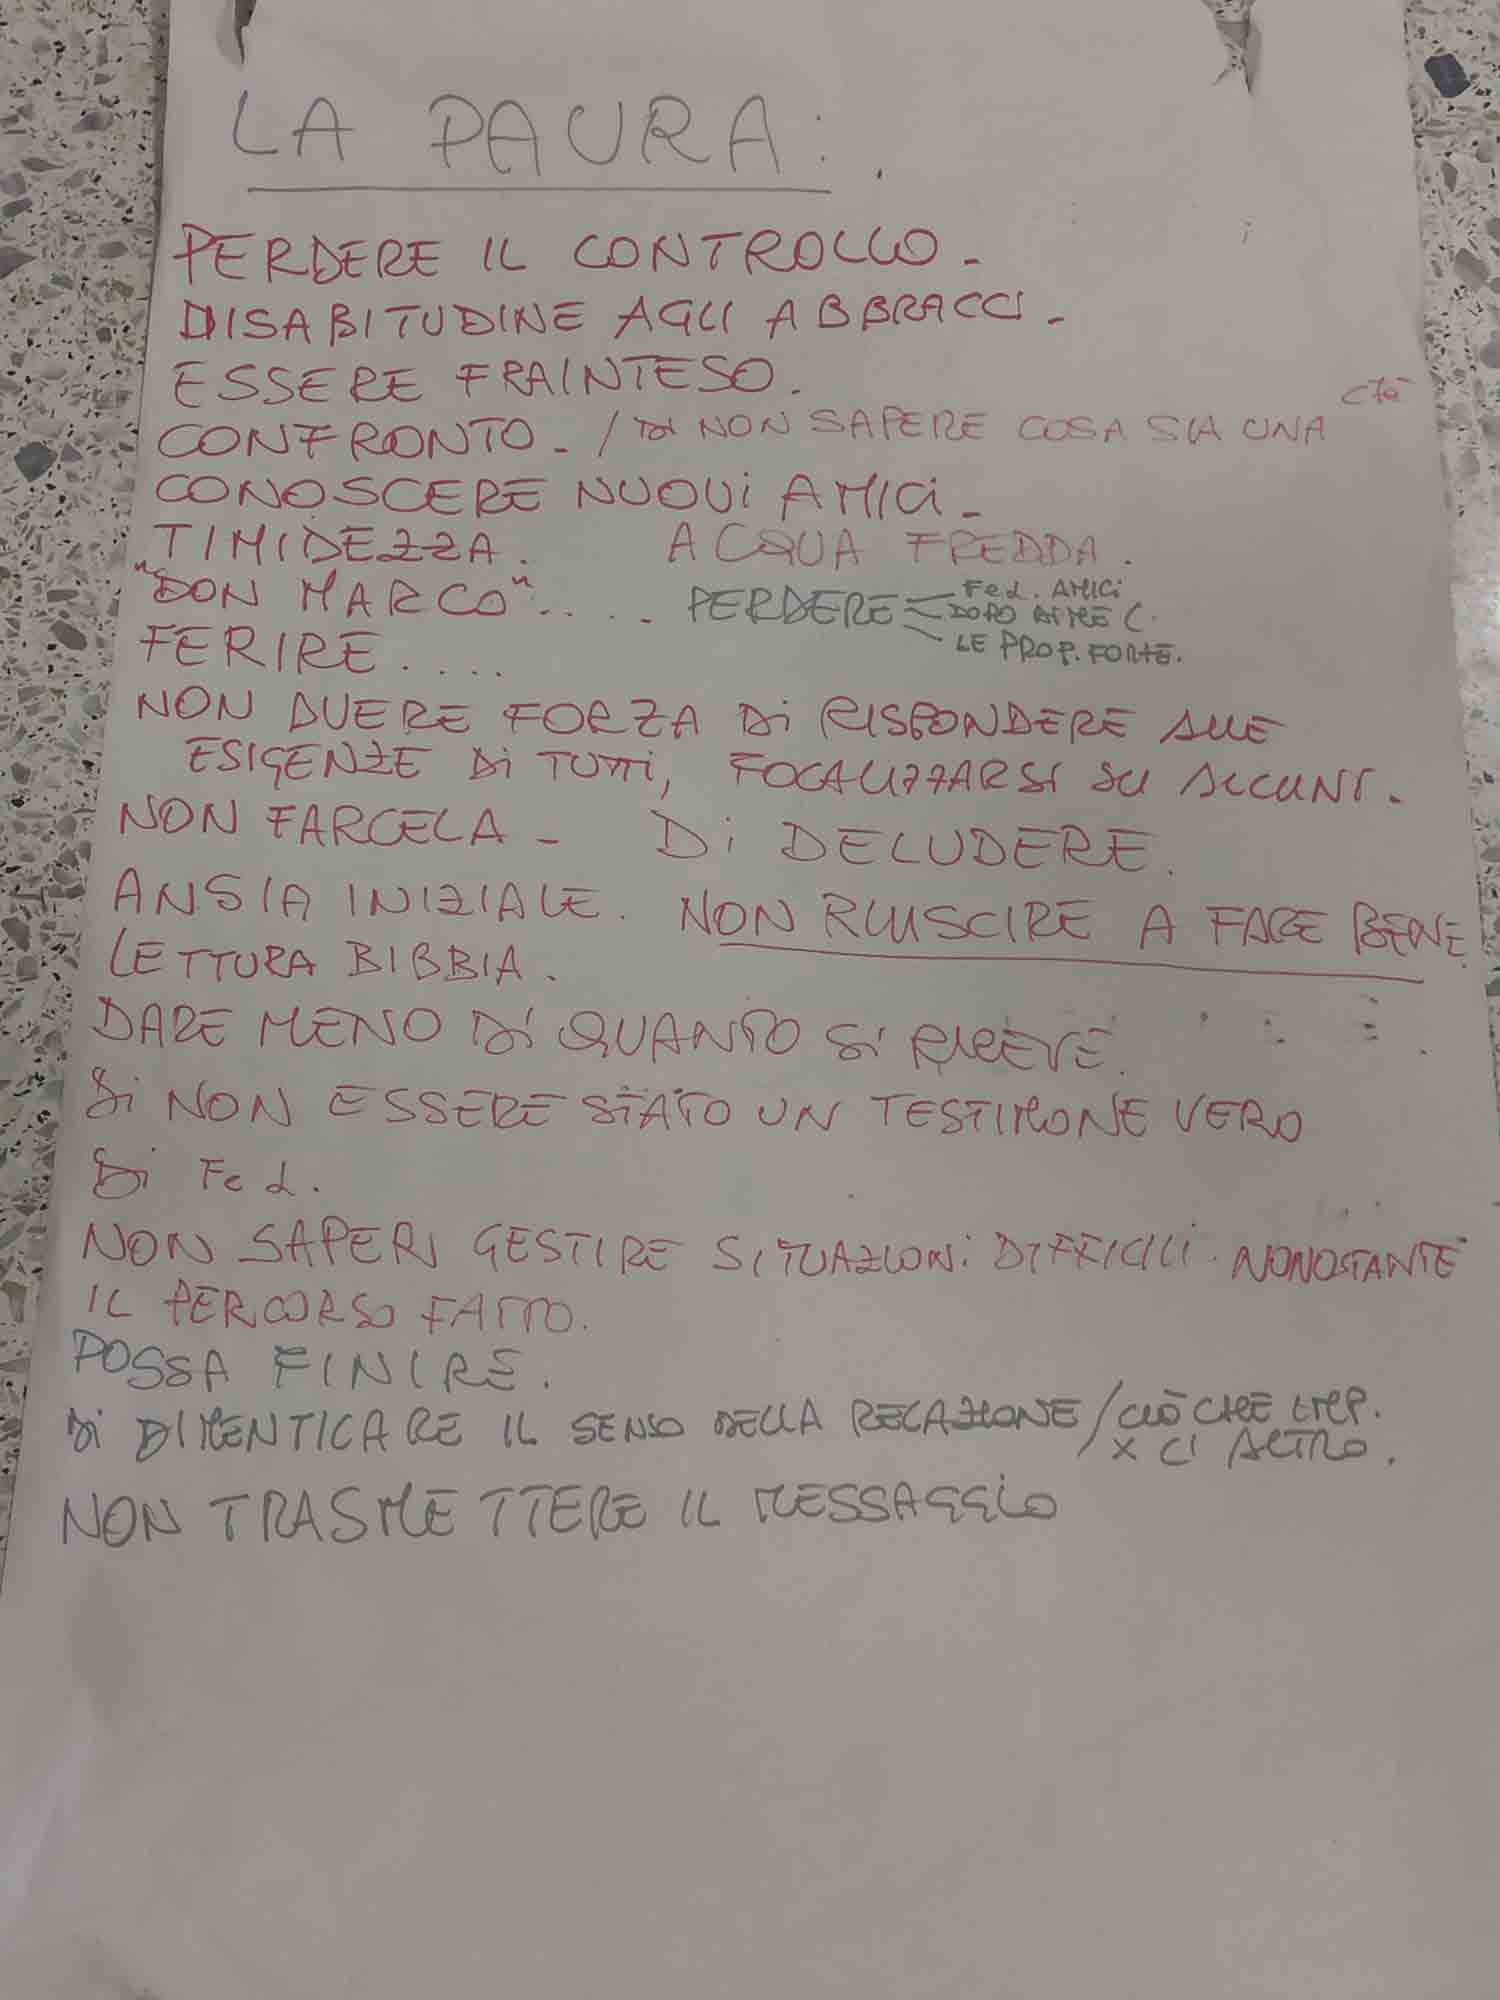 LA PAURA:
PERDERE IL CONTROLLO -
DISABITUDINE AGLI ABBRACCI -
ESSERE FRAINTESO.
CONFRONTO - / DI NON SAPERE COSA SIA UNA Ctà
CONOSCERE NUOVI AMICI -
TIMIDEZZA. ACQUA FREDDA.
"DON MARCO" .... PERDERE Fe d. AMICI
DOPO C.
LE PROP. FORTE.
FERIRE....
NON AVERE FORZA DI RISPONDERE ALLE
ESIGENZE DI TUTTI, FOCALIZZARSI SU ALCUNI.
NON FARCELA - DI DELUDERE.
ANSIA INIZIALE. NON RIUSCIRE A FARE BENE.
LETTURA BIBBIA.
DARE MENO DI QUANTO SI RICEVE.
DI NON ESSERE STATO UN TESTIMONE VERO
DI Fe d.
NON SAPERI GESTIRE SITUAZIONI DIFFICILI. NONOSTANTE
IL PERCORSO FATTO.
POSSA FINIRE.
DI DIMENTICARE IL SENSO DELLA RELAZIONE / CIÒ CHE IMP.
X CI ALTRO.
NON TRASMETTERE IL MESSAGGIO